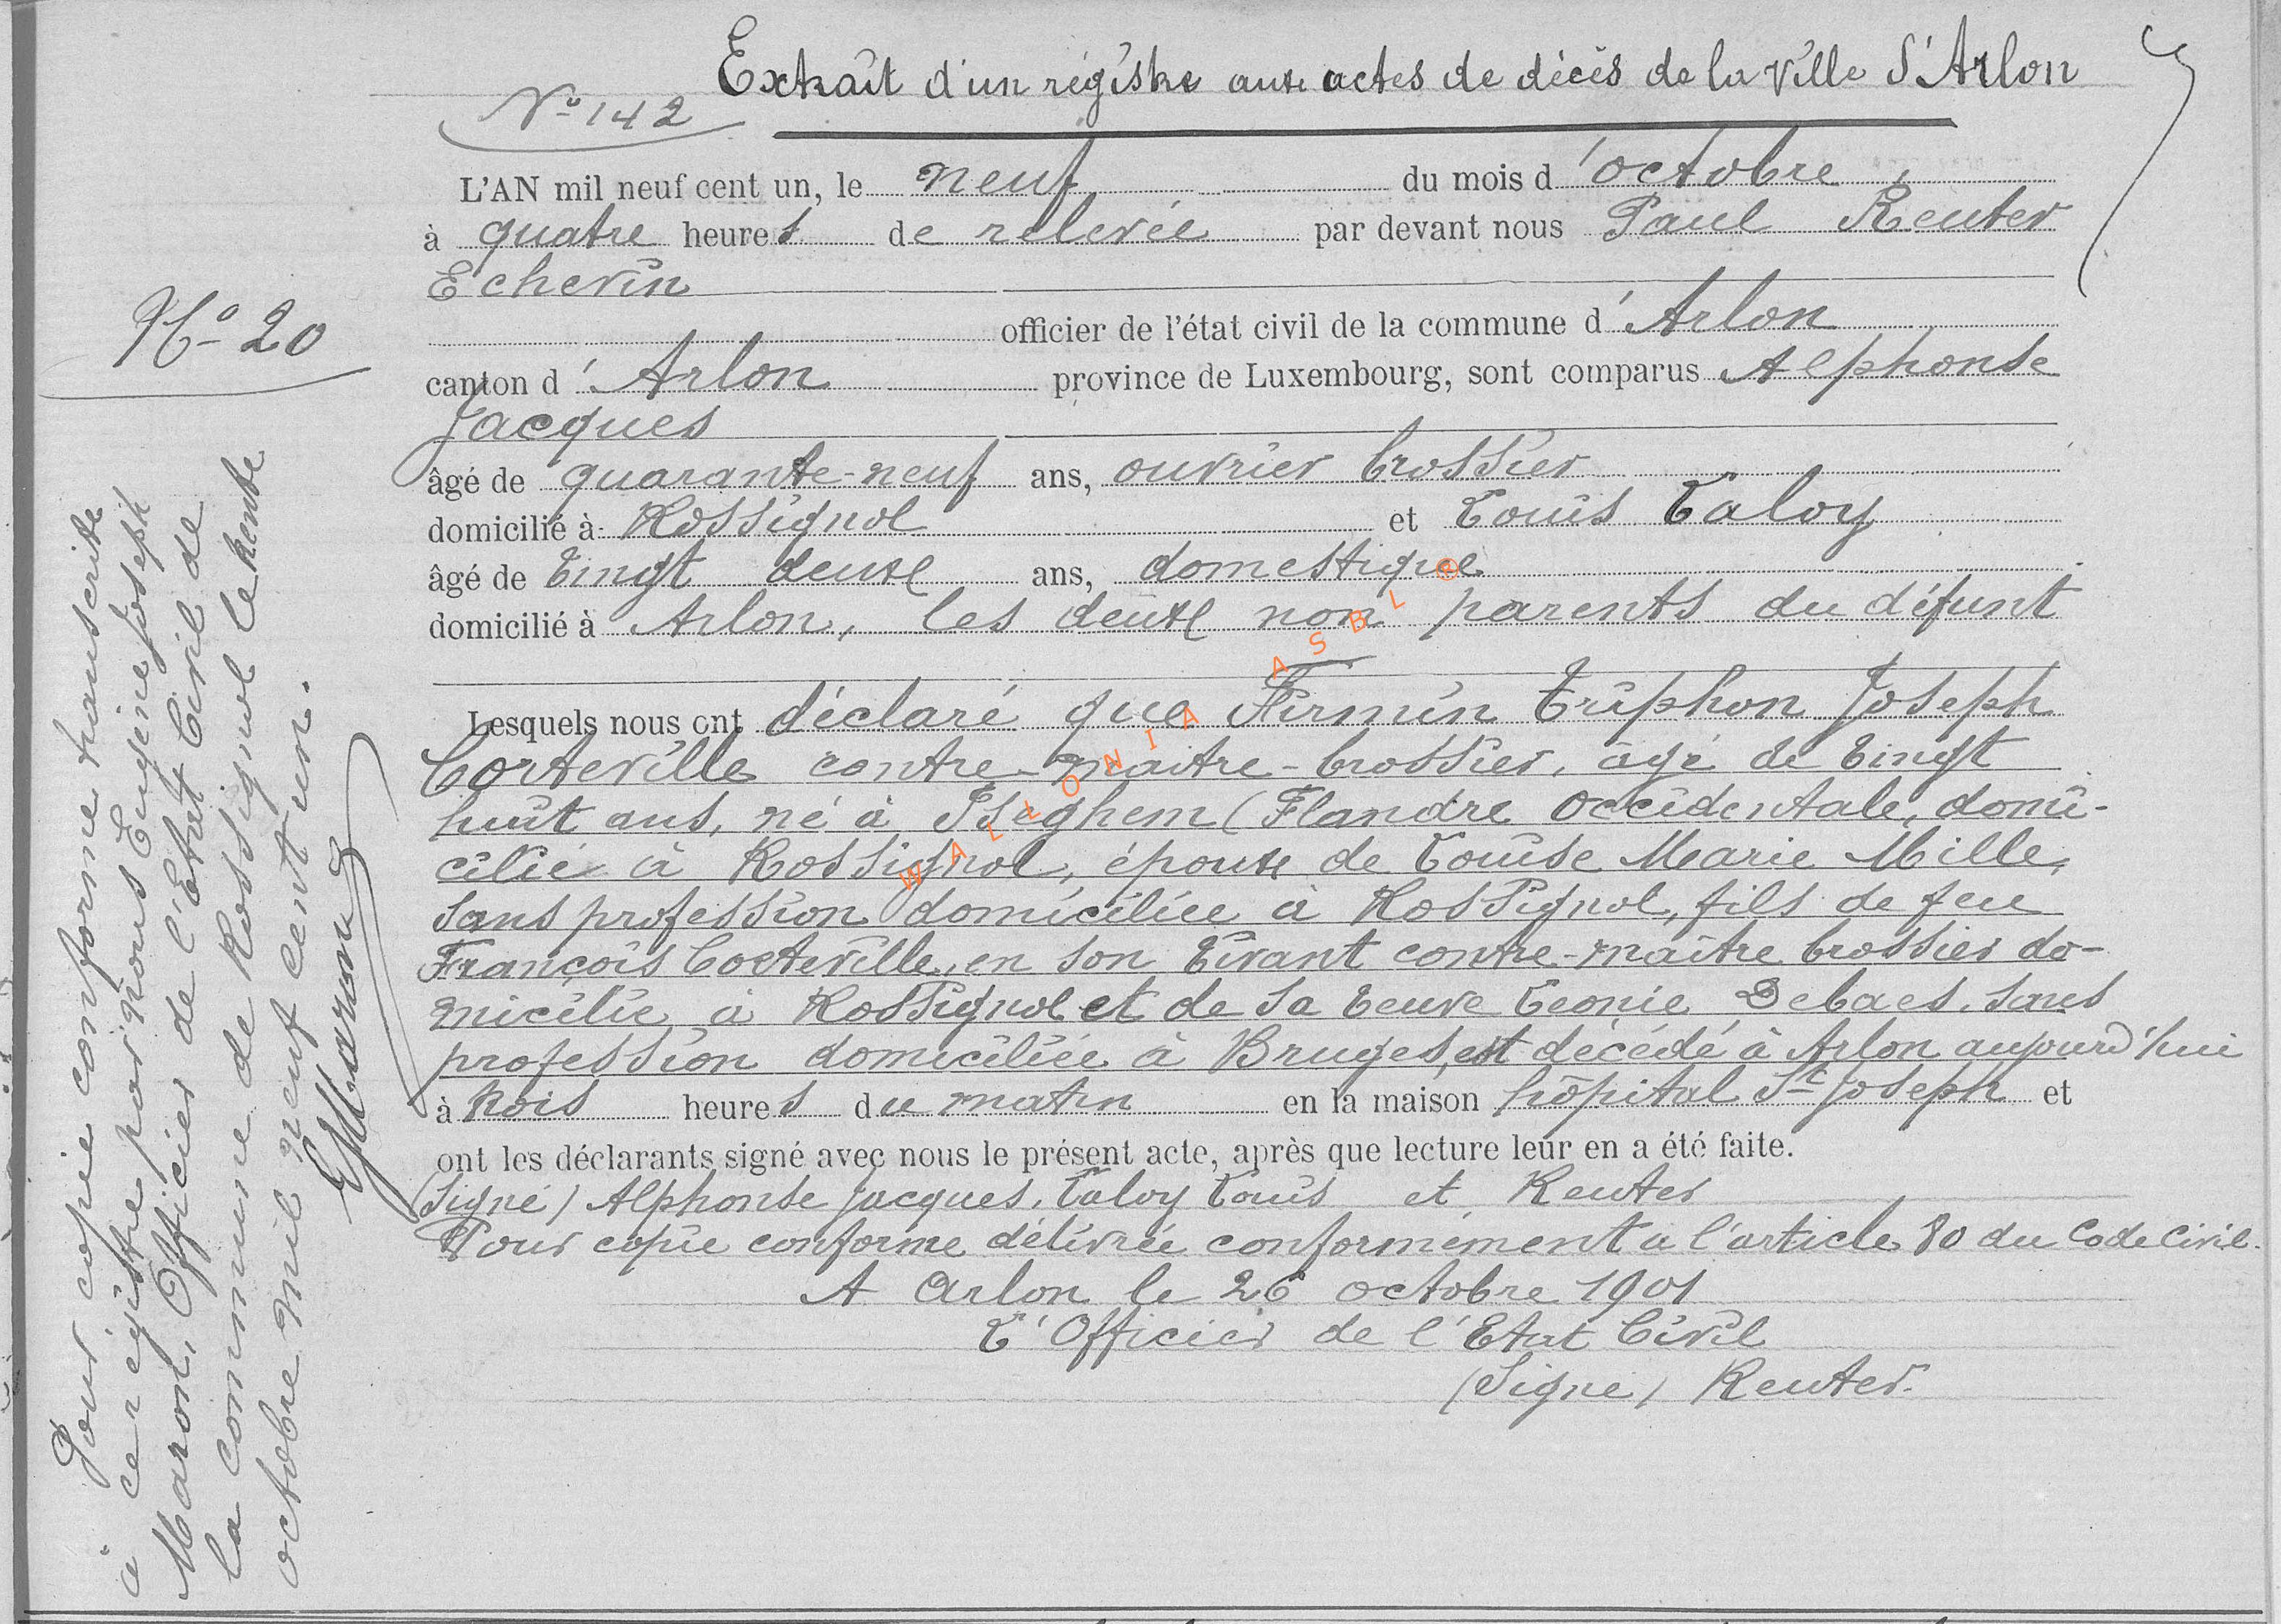 Extrait d'un régistre aux actes de décès de la Ville d'Arlon
N° 142
L'AN mil neuf cent un, le neuf du mois d'octobre
à quatre heures de relevée par devant nous Paul Reuter
Echevin
officier de l'état civil de la commune d'Arlon
canton d'Arlon province de Luxembourg, sont comparus Alphonse
Jacques
âgé de quarante-neuf ans, ouvrier brossier
domicilié à Rossignol et Louis Valoy
âgé de vingt deux ans, domestique
domicilié à Arlon, les deux non parents du défunt
Lesquels nous ont déclaré que Firmin Triphon Joseph
Corteville contre-maitre-brossier, âgé de vingt
huit ans, né à Iseghem (Flandre Occidentale, domi-
cilié à Rossignol, époux de Louise Marie Mille,
sans profession domiciliée à Rossignol, fils de feu
François Corteville, en son vivant contre-maître brossier do-
micilié à Rossignol et de sa veuve Leonie Debaes, sans
profession domiciliée à Bruges, est décédé à Arlon aujourd'hui
à trois heures du matin en la maison hôpital St Joseph et
ont les déclarants signé avec nous le présent acte, après que lecture leur en a été faite.
(Signé) Alphonse Jacques, Valoy Louis et Reuter
Pour copie conforme délivrée conformément à l'article 80 du Code Civil.
A Arlon le 26 octobre 1901
L'Officier de l'Etat Civil
(Signé) Reuter.
N° 20
Pour copie conforme transcrite
à ce registre par nous Eugène Joseph
Maron, Officier de l'Etat Civil de
la commune de Rossignol le trente
octobre mil neuf cent un.
EJMaron
WALLONIA ASBL ®